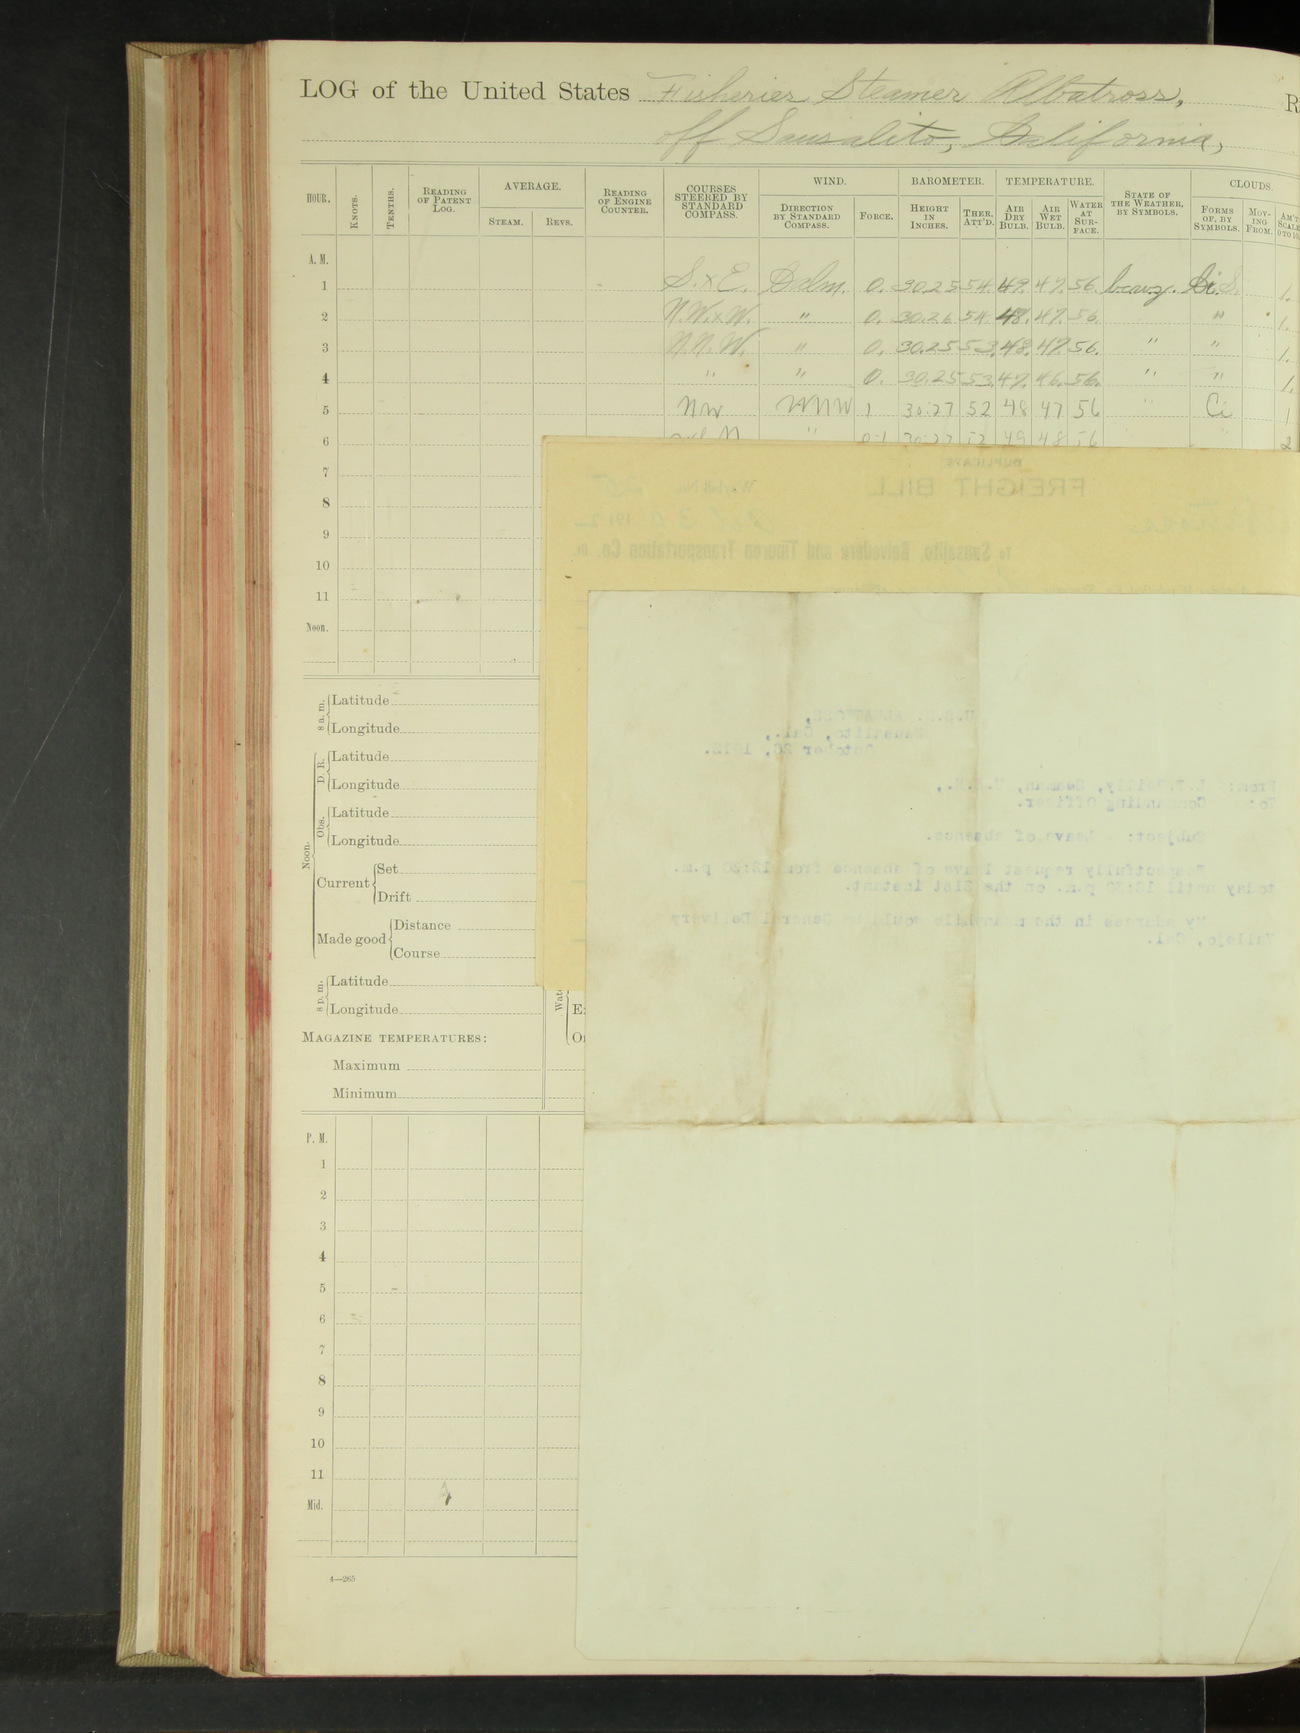 LOG of the United States Fisheries Steamer Albatross, R
off Sausalito, California,
HOUR. KNOTS. TENTHS. READING OF PATENT LOG. AVERAGE. STEAM. REVS. READING OF ENGINE COUNTER. COURSES STEERED BY STANDARD COMPASS. WIND. DIRECTION BY STANDARD COMPASS. FORCE. BAROMETER. HEIGHT IN INCHES. THER. ATT'D. TEMPERATURE. AIR DRY BULB. AIR WET BULB. WATER AT SURFACE. STATE OF THE WEATHER, BY SYMBOLS. CLOUDS. FORMS OF, BY SYMBOLS. MOVING FROM. AM'T SCALE 0 TO 10.
A. M.
1 S.xE. Calm. 0. 30.25 54. 49. 47. 56. Ci.S. 1.
2 N.W.xW. " 0. 30.26 54. 48. 47. 56. " 1.
3 N.N.W. " 0. 30.25 53. 48. 47. 56. " " 1.
4 " " 0. 30.25 53. 47. 46. 56. " " 1.
5 NW WNW 1 30.27 52 48 47 56 " Ci 1
6 " 0-1 30.27 52 49 48 56 2
7
8
9
10
11
Noon.
DUPLICATE
FREIGHT BILL
Waybill No. 25
1912
To Sausalito, Belvedere and Tiburon Transportation Co. Dr.
8 a. m. Latitude
Longitude
Noon. D. R. Latitude
Longitude
Obs. Latitude
Longitude
Current Set
Drift
Made good Distance
Course
8 p. m. Latitude
Longitude
MAGAZINE TEMPERATURES:
Maximum
Minimum
U.S.S. ALBATROSS,
Sausalito, Cal.,
October 26, 1912.
From: Seaman, U.S.N.,
To: Commanding Officer.
Subject: Leave of absence.
Respectfully request leave of absence from 12:30 p.m.
today until 12:30 p.m. on the 31st instant.
My address in the meanwhile would be General Delivery
Vallejo, Cal.
P. M.
1
2
3
4
5
6
7
8
9
10
11
Mid.
4—265